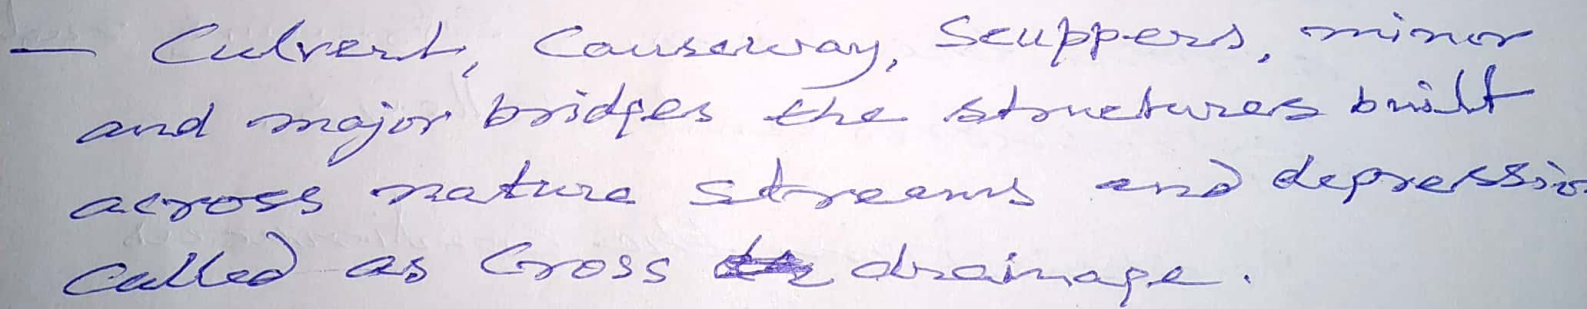 — Culvert, Causeway, Scuppers, minor
and major bridges the structures built
across nature streams and depressio
Called as Cross drainage.